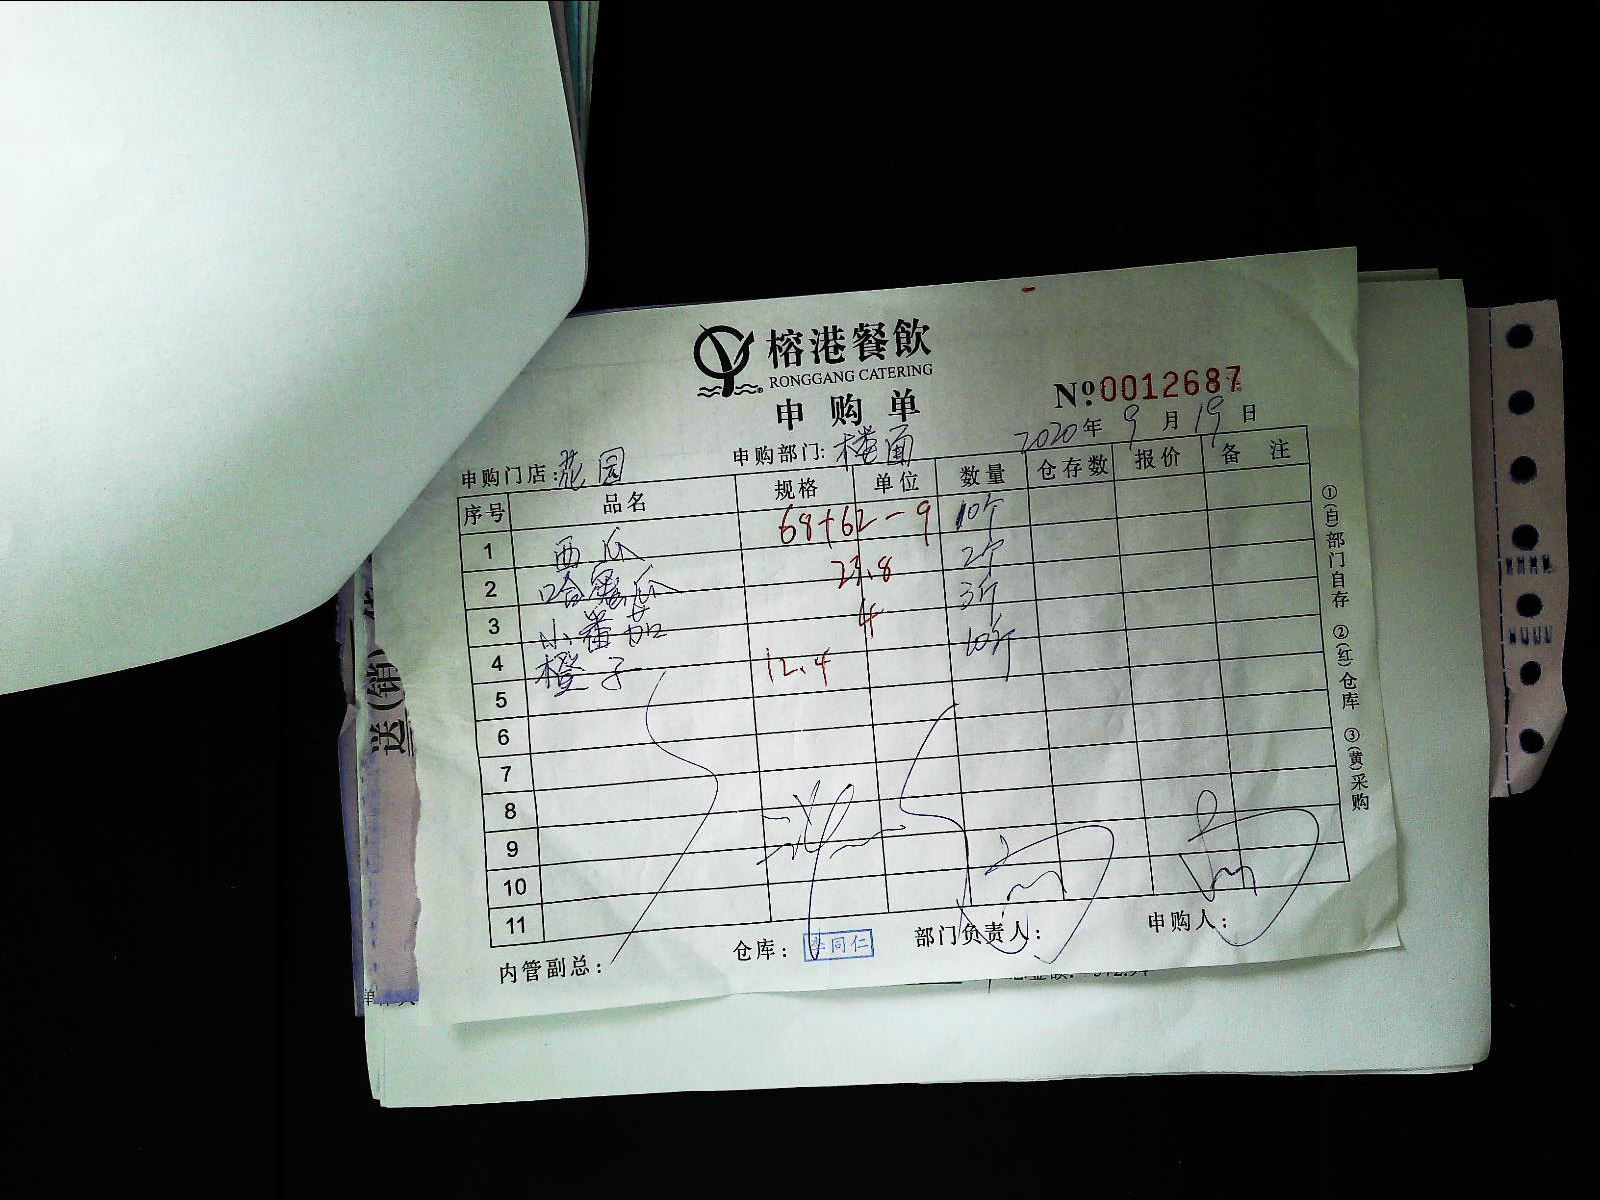 榕港餐飲
RONGGANG CATERING
申购单
Nº:0012687
2020年9月19日
申购门店:花园 申购部门:楼面
序号 品名 规格 单位 数量 仓存数 报价 备注
1 西瓜 68+62-9 10个
2 哈蜜瓜 23.8 2个
3 小番茄 4 3斤
4 橙子 12.4 10斤
5
6
7
8
9
10
11
内管副总: 仓库: 李同仁 部门负责人: 申购人:
①(白)部门自存 ②(红)仓库 ③(黄)采购
送(销)